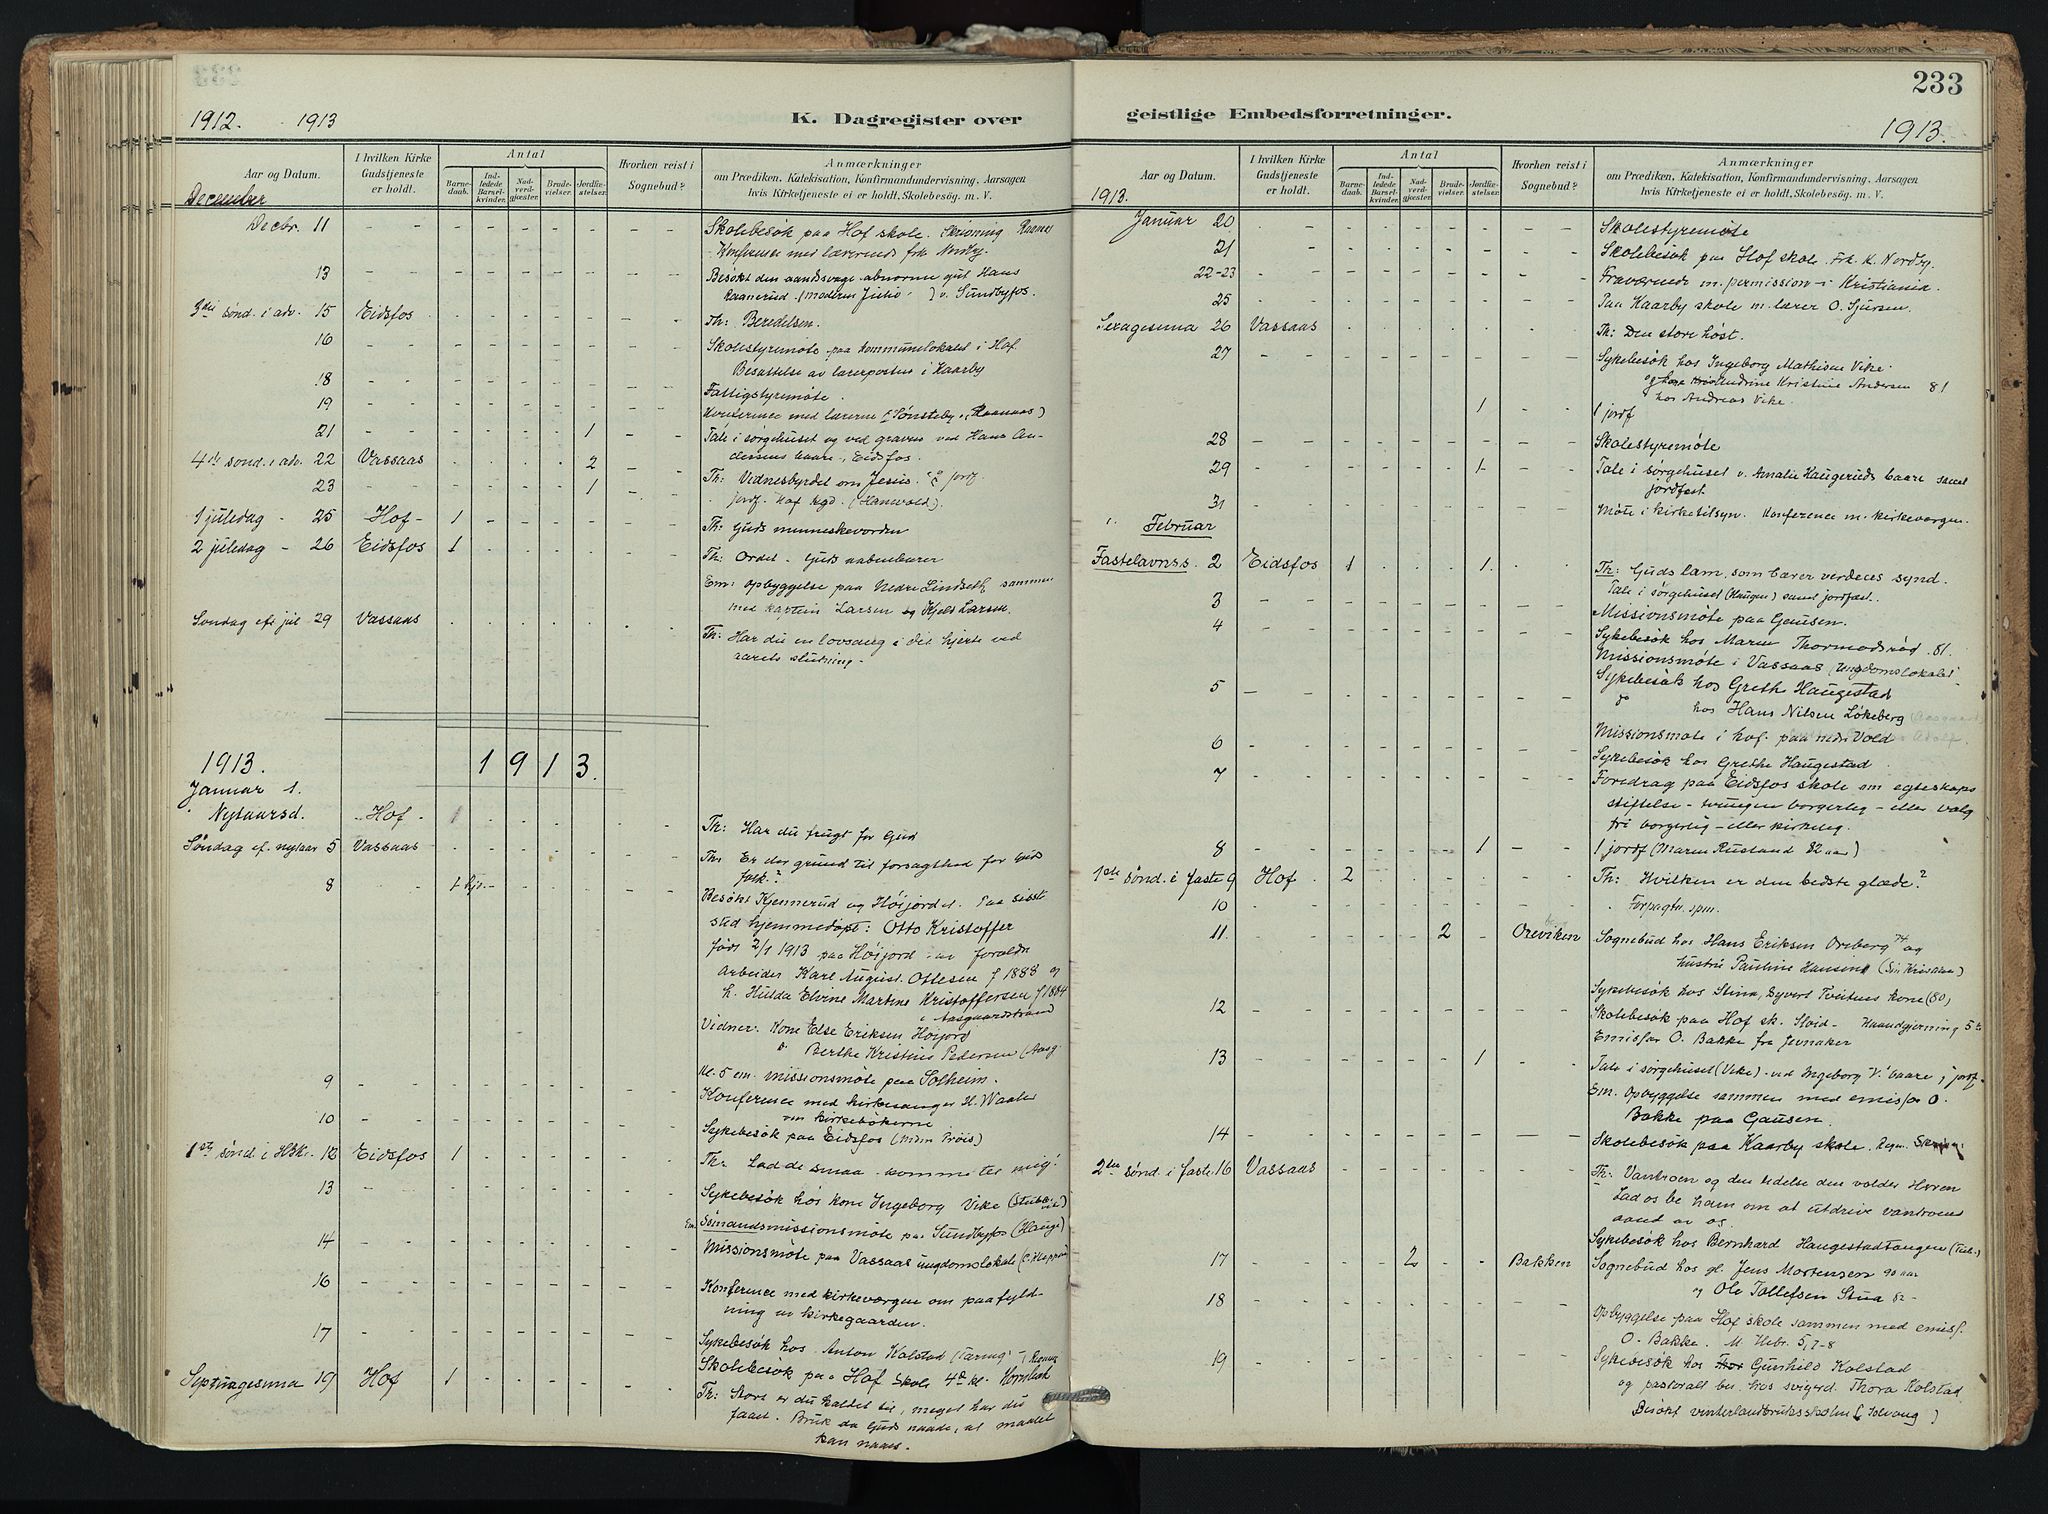 233
1912. 1913
K. Dagregister over
Aar og Datum.
I hvilken Kirke Gudstjeneste er holdt.
Antal
Barnedaab.
Indledede Barselkvinder.
Nadverdgjæster.
Brudevielser.
Jordfæstelser.
Hvorhen reist i Sognebud?
Anmærkninger
om Prædiken, Katekisation, Konfirmandundervisning, Aarsagen
hvis Kirketjeneste ei er holdt, Skolebesøg m. V.
December
Decbr. 11 Skolebesøk paa Hof skole. Skrivning
Konference med lærerinde frk Nordby.
13 Besøkt den aandsvage abnorme gut Hans
Raanerud. (moderen ) v. Sundbyfos.
3die sønd. i adv. 15 Eidsfos Th: Beredelsen.
16 Skolestyremøte paa kommunelokalet i Hof.
Besættelse av lærerposten i Haarby
18 Fattigstyremøte.
19 Konference med lærerne (Sønsteby, Raanaas)
21 1 Tale i sørgehuset og ved graven ved Hans An-
dersens baare, Eidsfos.
4de sønd. i adv. 22 Vassaas 2 Th: Vidnesbyrdet om Jesus. 2 jordf.
23 1 jordf. Hof kgd. (Hanevold).
1 juledag - 25 Hof - 1 Th: Guds menneskevorden
2 juledag - 26 Eidsfos 1 Th: Ordet - Guds aabenbarer
Em: opbyggelse paa Nedre Lindseth sammen
med kaptein Larsen og Kjels Larsen.
Søndag eft jul 29 Vassaas Th: Har du en lovsang i dit hjerte ved
aarets slutning -
1913. 1913.
Januar 1.
Nytaarsd. Hof - 1 Th: Har du frugt for Gud
Søndag ef. nytaar 5 Vassaas Th: Er der grund til forsagthed for Guds
folk?
8 1 hj. Besøkt Kjennerud og Høijord. Paa sidst
sted hjemmedøpt: Otto Kristoffer
født 2/1 1913 paa Høijord av foreldre
Arbeider Karl August Ottesen f 1888 og
h. Hulda Elvine Martine Kristoffersen f 1884
i Aasgaardstrand
Vidner: Kone Else Eriksen Høijord
Berthe Kristine Pedersen (Aasg.
9 Kl. 5 em. missionsmøte paa Solheim.
Konference med kirkesanger H. Waaler
om kirkebøkerne
10 Sykebesøk paa Eidsfos
1ste sønd. i H3K. 12 Eidsfos 1 Th: Lad de smaa komme til mig!
13 Sykebesøk hos kone Ingeborg Vike
Em. Sømandsmissionsmøte paa Sundbyfos (Hauge)
14 Missionsmøte paa Vassaas ungdomslokale
16 Konference med kirkeværgen om paafyld-
ning av kirkegaarden.
17 Sykebesøk hos Anton Kolstad
Skolebesøk paa Hof skole 4de kl.
Septuagesima 19 Hof 1 Th: Stort er du kaldet til, meget har du
faaet. Bruk da Guds naade, at maalet
kan naaes.
geistlige Embedsforretninger.
1913.
Aar og Datum.
I hvilken Kirke Gudstjeneste er holdt.
Antal
Barnedaab.
Indledede Barselkvinder.
Nadverdgjæster.
Brudevielser.
Jordfæstelser.
Hvorhen reist i Sognebud?
Anmærkninger
om Prædiken, Katekisation, Konfirmandundervisning, Aarsagen
hvis Kirketjeneste ei er holdt, Skolebesøg m. V.
1913.
Januar 20 Skolestyremøte
21 Skolebesøk paa Hof skole. Frk. K. Nordby.
22-23 Fraværende m. permission i Kristiania
25 Paa Haarby skole m. lærer O. Sjursen.
Sexagesima 26 Vassaas Th: Den store høst.
27 Sykebesøk hos Ingeborg Mathisen Vike.
og hos Andrine Kristine Andersen 81
hos Andreas Vike.
1 1 jordf
28 Skolestyremøte
29 1 Tale i sørgehuset v. Amalie Haugeruds baare samt
jordfæst
31 Møte i kirketilsyn. Konference m. kirkeværgen.
Februar
Fastelavnss. 2 Eidsfos 1 1 Th: Guds lam, som bærer verdens synd.
Tale i sørgehuset (Haugen) samt jordfæst.
3 Missionsmøte paa Gausen.
4 Sykebesøk hos Maren Thormodsrød 81.
Missionsmøte i Vassaas (Ungdomslokalet
5 Sykebesøk hos Grethe Haugestad
hos Hans Nilsen Løkeberg
6 Missionsmøte i Hof. paa nedre Vold
Sykebesøk hos Grethe Haugestad
7 Foredrag paa Eidsfos skole om egteskaps
stiftelse - tvungen borgerlig - eller valg
fri borgerlig - eller kirkelig.
8 1 1 jordf (Maren Rustand 82 aar)
1ste sønd. i faste 9 Hof 2 Th: Hvilken er den bedste glæde?
10 Forpagtn. spm.
11. 2 Oreviken Sognebud hos Hans Eriksen Oreberg 74 og
hustru Pauline Hansen
12 Sykebesøk hos Stina, Syvert Tveitens kone (80)
Skolebesøk paa Hof sk. Sløid - Haandgjerning 5te
Emissær O. Bakke fra Jevnaker
13 1 Tale i sørgehuset (Vike) - ved Ingeborg V.' baare, jordf.
Em. Opbyggelse sammen med emissær O.
Bakke paa Gausen.
14 Skolebesøk paa Kaarby skole. Regn.
2den sønd. i faste 16 Vassaas Th: Vantroen og den lidelse den volder Herren
Lad os be ham om at utdrive vantroens
aand av os.
Sykebesøk hos Bernhard Haugestadtangen
17 2 Bakken Sognebud hos gl. Jens Mortensen 90 aar
og Ole Tollefsen Stua 82 -
18 Opbyggelse paa Hof skole sammen med emiss.
O. Bakke. M Hebr. 5, 7-8
19 Sykebesøk hos Gunhild Kolstad
og pastoralt bes. hos svigerd. Thora Kolstad
Besøkt vinterlandbruksskolen (Solvang)